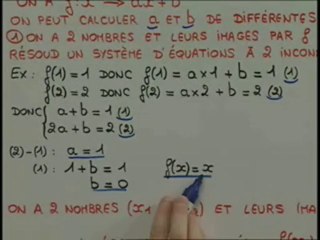 ON A f: x → ax + b
ON PEUT CALCULER a ET b DE DIFFÉRENTES
① ON A 2 NOMBRES ET LEURS IMAGES PAR f
RÉSOUD UN SYSTÈME D'ÉQUATIONS À 2 INCON
Ex : f(1) = 1 DONC f(1) = a×1 + b = 1 (1)
f(2) = 2 DONC f(2) = a×2 + b = 2 (2)
DONC { a + b = 1 (1)
2a + b = 2 (2)
(2)-(1) : a = 1
(1) : 1 + b = 1 f(x) = x
b = 0
ON A 2 NOMBRES (x1 ET LEURS IMA